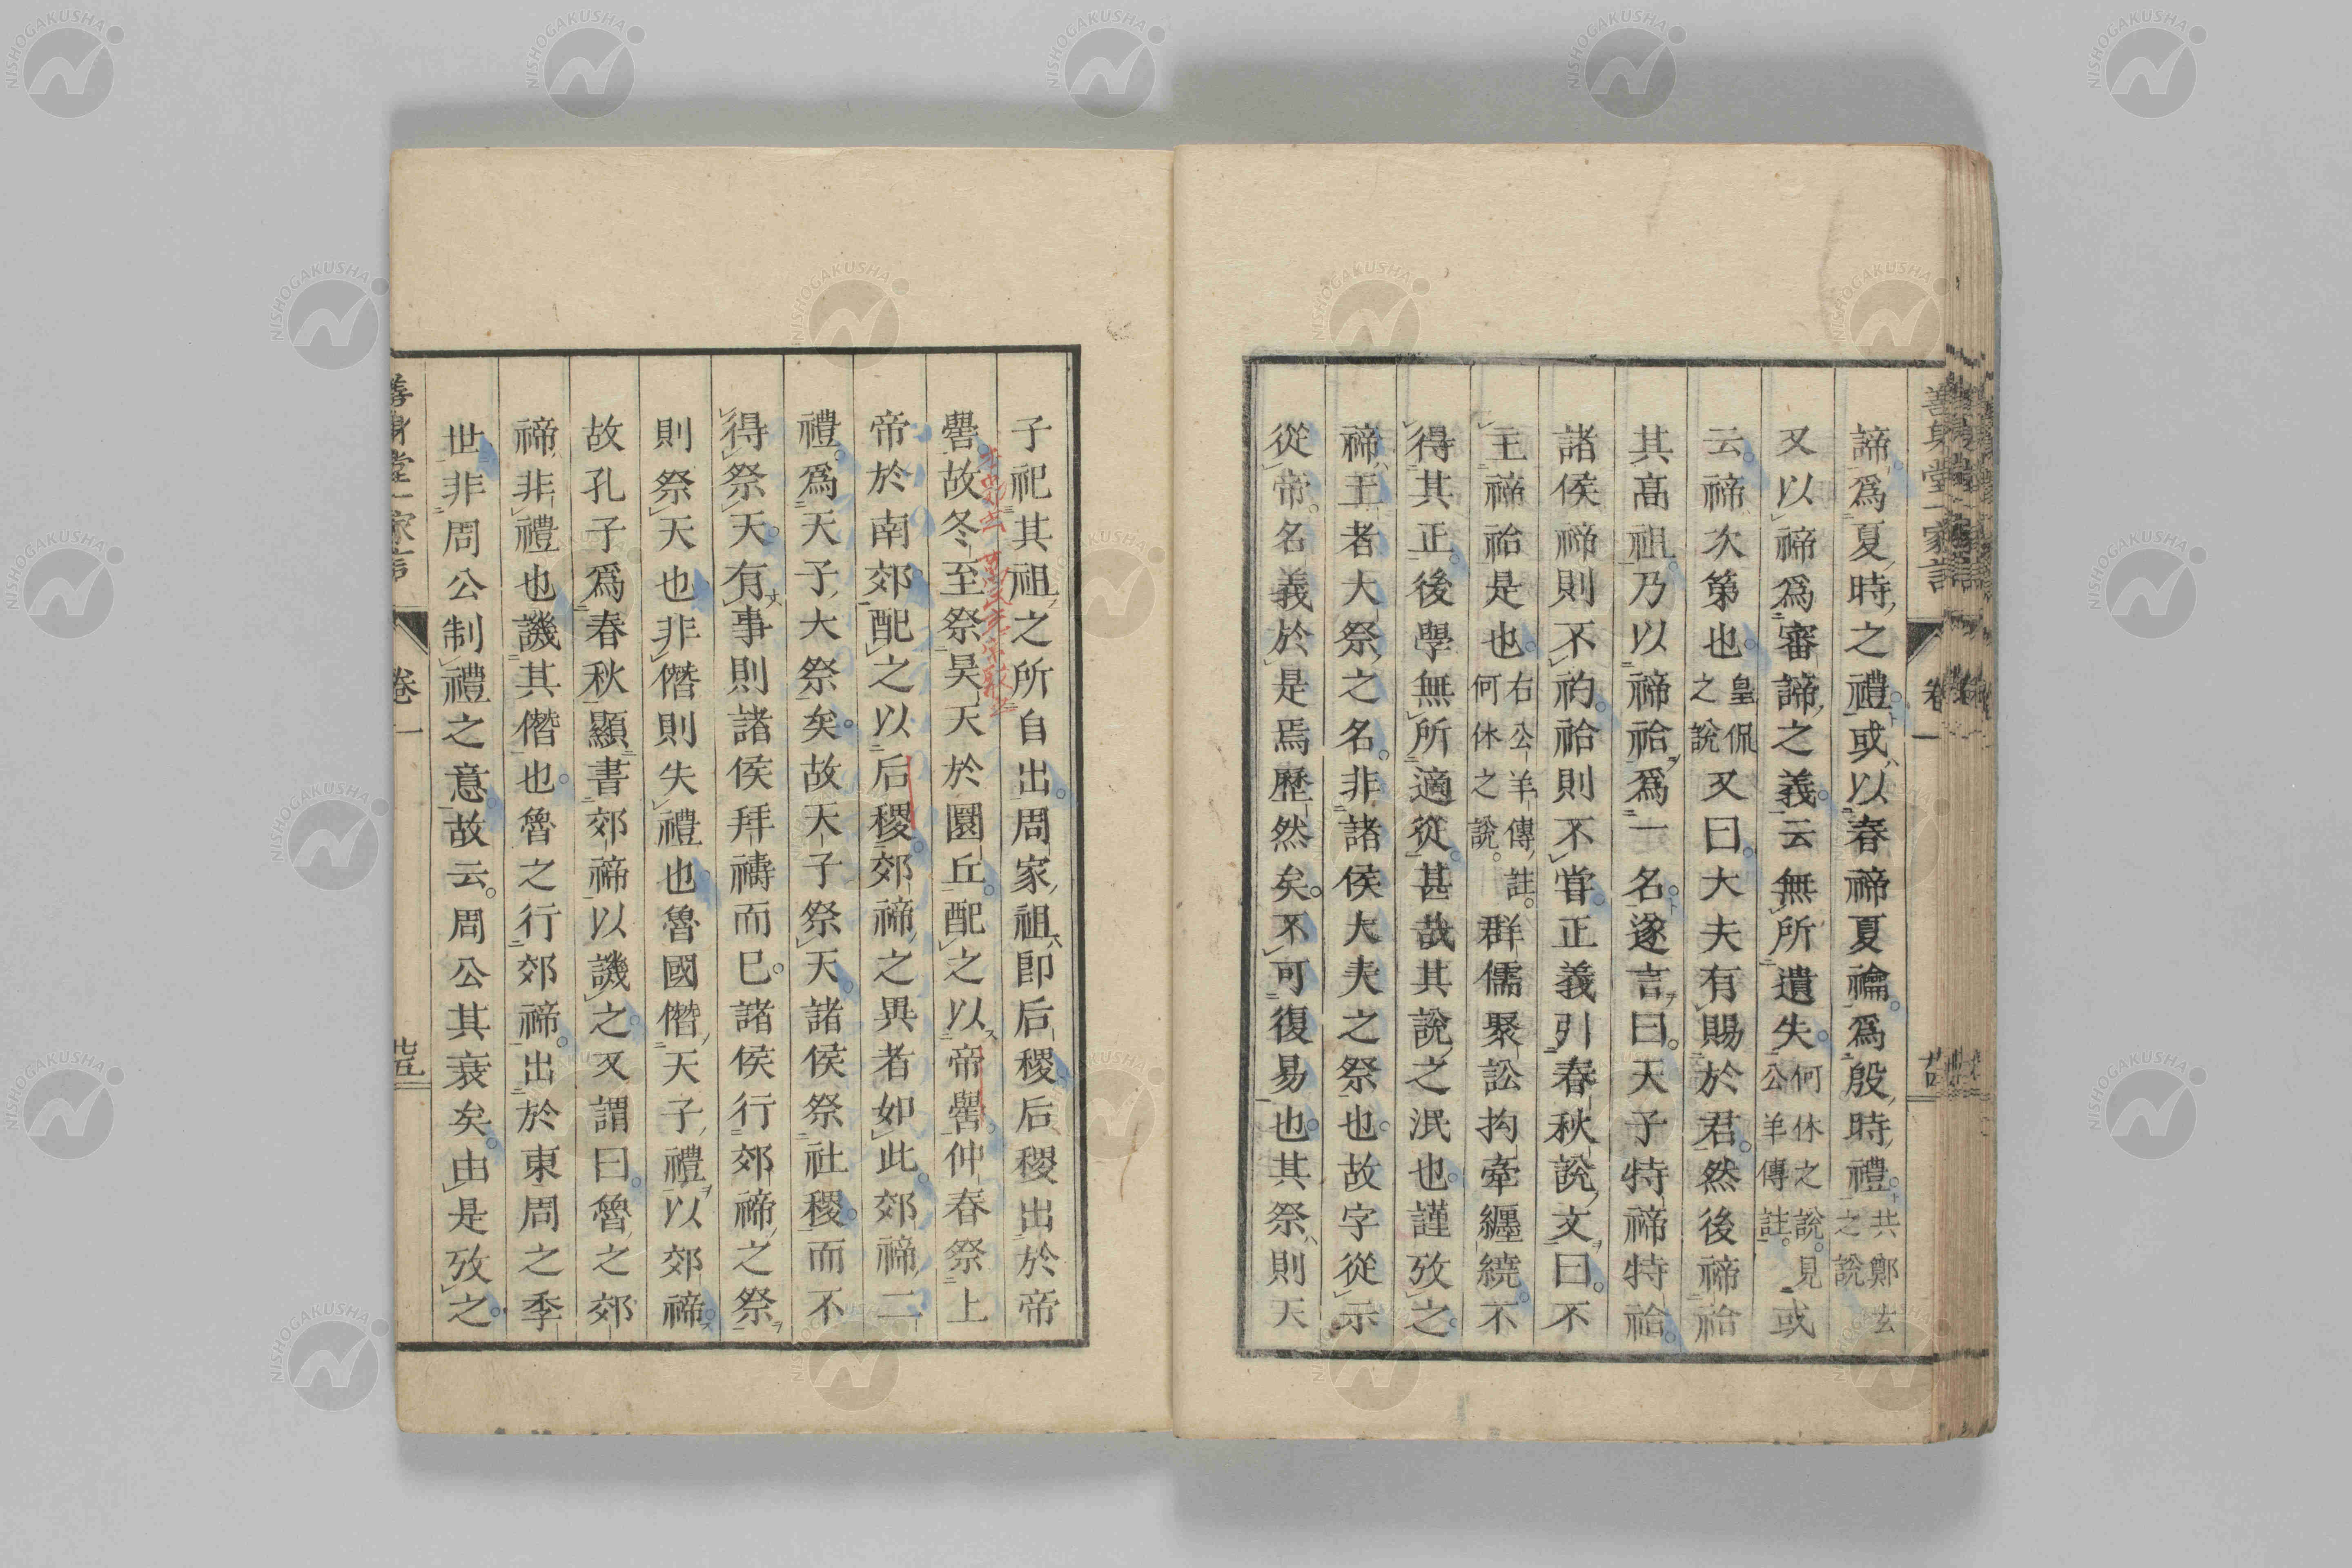 諦爲夏時之禮或以春禘夏禴爲殷時禮共鄭玄之說
又以禘爲審諦之義云無所遺失何休之說見公羊傳註或
云禘次第也皇侃之說又曰大夫有賜於君然後禘祫
其高祖乃以禘祫爲一名遂言曰天子特禘特祫
諸侯禘則不礿祫則不甞正義引春秋說文曰不
王禘祫是也右公羊傳註何休之說群儒聚訟拘牽纏繞不
得其正後學無所適從甚哉其說之泯也謹攷之
禘王者大祭之名非諸侯大夫之祭也故字從示
從帝名義於是焉歷然矣不可復易也其祭則天
善身堂一家言 卷一
子祀其祖之所自出周家祖即后稷后稷出於帝
嚳故冬至祭昊天於圜丘配之以帝嚳仲春祭上
帝於南郊配之以后稷郊禘之異者如此郊禘二
禮爲天子大祭矣故天子祭天諸侯祭社稷而不
得祭天有事則諸侯拜禱而已諸侯行郊禘之祭
則祭天也非僭則失禮也魯國僭天子禮以郊禘
故孔子爲春秋顯書郊禘以譏之又謂曰魯之郊
禘非禮也譏其僭也魯之行郊禘出於東周之季
世非周公制禮之意故云周公其衰矣由是攷之
善身堂一家言 卷一 廿五
NISHOGAKUSHA